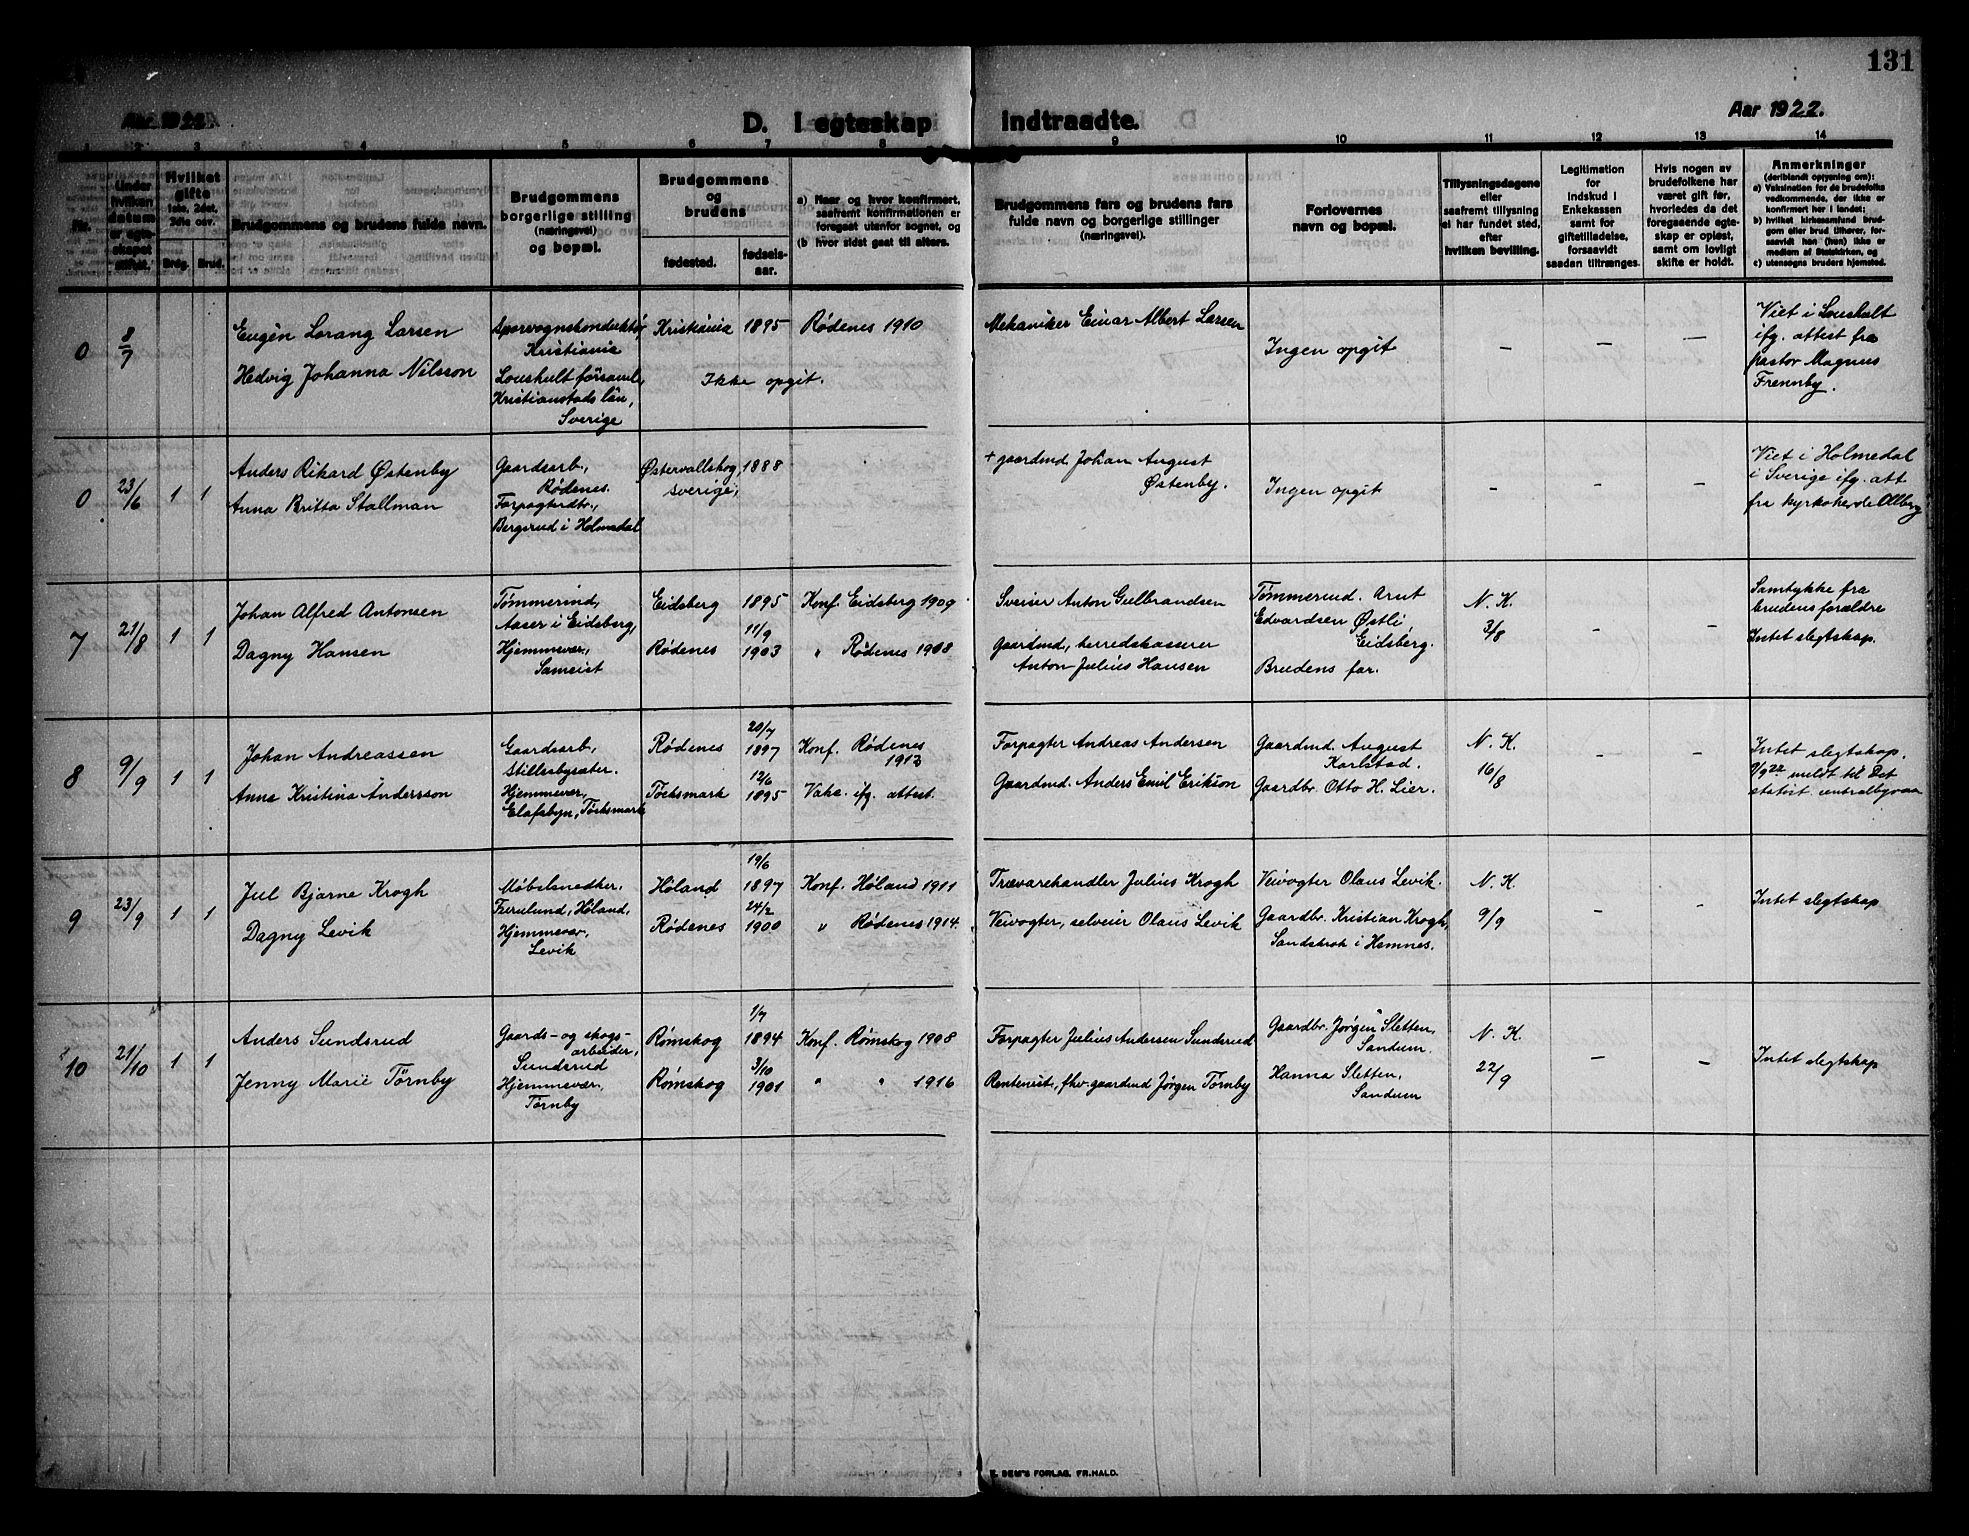 131
Aar 1922.
D. I egteskap indtraadte.
Aar 1922.
1 2 3 4 5 6 7 8 9 10 11 12 13 14
Nr.
Under hvilken datum er egteskapet stiftet.
Hvilket gifte 1ste, 2det, 3die osv.
Brdg. Brud.
Brudgommens og brudens fulde navn.
Brudgommens borgerlige stilling (næringsvei) og bopæl.
Brudgommens og brudens
fødested. fødselsaar.
a) Naar og hvor konfirmert, saafremt konfirmationen er foregaat utenfor sognet, og
(b hvor sidst gaat til alters.
Brudgommens fars og brudens fars fulde navn og borgerlige stillinger (næringsvei).
Forlovernes navn og bopæl.
Tillysningsdagene eller saafremt tillysning ei har fundet sted, efter hvilken bevilling.
Legitimation for indskud i Enkekassen samt for giftetilladelse, forsaavidt saadan tiltrænges.
Hvis nogen av brudefolkene har været gift før, hvorledes da det foregaaende egteskap er opløst, samt om lovligt skifte er holdt.
Anmerkninger (deriblandt oplysning om):
a) Vaksination for de brudefolks vedkommende, der ikke er konfirmert her i landet;
b) hvilket kirkesamfund brudgom eller brud tilhører, forsaavidt han (hun) ikke er medlem af Statskirken, og
c) utensogns bruders hjemsted.
0 8/7
Eugén Lorang Larsen
Hedvig Johanna Nilsson
Sporvognskonduktør,
Kristiania
Loushult församl.,
Kristianstads län,
Sverige
Kristiania 1895 Rødenes 1910
Ikke opgit.
Mekaniker Einar Albert Larsen
Ingen opgit
— — —
Viet i Loushult
ifg. attest fra
pastor Magnus
Frennby.
0 23/6 1 1
Anders Rikard Østenby
Anna Britta Stallman
Gaardsarb.,
Rødenes.
Forpagterdtr.,
Bergsrud i Holmedal
Østervallskog, 1888
Sverige;
+ gaardmd. Johan August
Østenby.
Ingen opgit
— — —
Viet i Holmedal
i Sverige ifg. att
fra kyrkoherde Allberg
7 21/8 1 1
Johan Alfred Antonsen
Dagny Hansen
Tømmerind,
Aaser i Eidsberg,
Hjemmevær.,
Sameist
Eidsberg 1895 Konf. Eidsberg 1909
Rødenes 11/9 1903 " Rødenes 1908
Sveiser Anton Gulbrandsen
Gaardmd, herredskasserer
Anton Julius Hansen
Tømmerind. Arnt
Edvardsen Østli,
Eidsberg.
Brudens far.
N. K.
3/8
— —
Samtykke fra
brudens forældre
Intet slegtskap.
8 9/9 1 1
Johan Andreassen
Anna Kristina Andersson
Gaardsarb.,
Stillesbysæter.
Hjemmevær,
Elofsbyn, Töcksmark
Rødenes 20/7 1897 Konf. Rødenes
1912
Töcksmark 12/6 1895 Vaks. ifg. attest.
Forpagter Andreas Andersen
Gaardmd. Anders Emil Erikson
Gaardmd. August
Karlstad.
Gaardbr. Otto H. Lier.
N. K.
16/8
— —
Intet slegtskap.
9/9 22 meldt til Det
statist. centralbyraa
9 23/9 1 1
Jul Bjarne Krogh
Dagny Levik
Møbelsnedker,
Fierulund, Høland,
Hjemmevær,
Levik
Høland 19/6 1897 Konf. Høland 1911
Rødenes 24/2 1900 " Rødenes 1914.
Trævarehandler Julius Krogh
Veivogter, selveier Olaus Levik
Veivogter Olaus Levik.
Gaardbr. Kristian Krogh,
Sandskrok i Hemnes.
N. K
9/9
— —
Intet slegtskap
10 21/10 1 1
Anders Sundsrud
Jenny Marie Tørnby
Gaards- og skogs-
arbeider,
Sundsrud
Hjemmevær,
Tørnby
Rømskog 1/7 1894 Konf. Rømskog 1908
Rømskog 3/10 1901 " " 1916
Forpagter Julius Andersen Sundsrud
Rentenist, fhv. gaardmd Jørgen Tørnby
Gaardbr. Jørgen Sletten,
Sandum.
Hanna Sletten,
Sandum
N. K.
22/9
— —
Intet slegtskap
E. SEM'S FORLAG, FR.HALD.